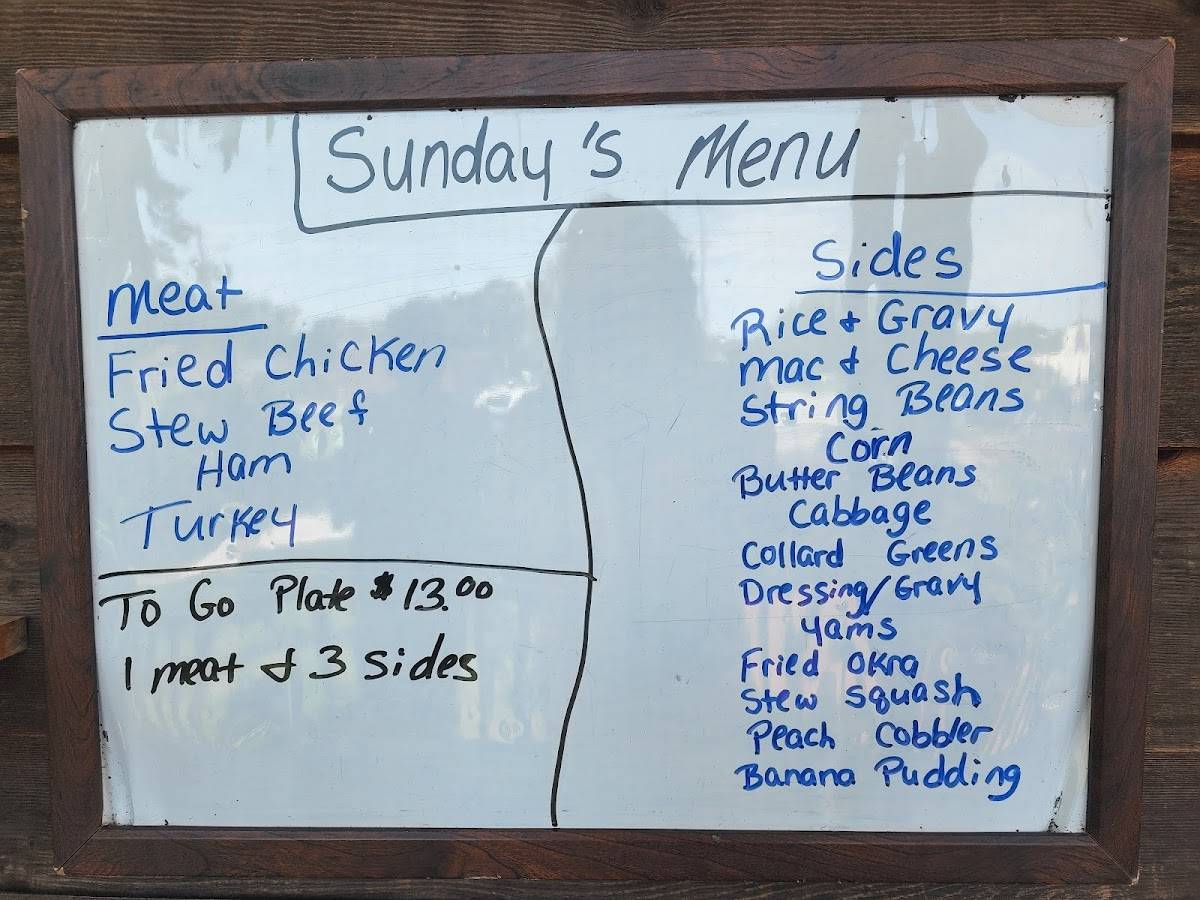 Sunday's Menu
Meat
Fried Chicken
Stew Beef
Ham
Turkey
To Go Plate $13.00
1 meat & 3 sides
Sides
Rice & Gravy
Mac & Cheese
String Beans
Corn
Butter Beans
Cabbage
Collard Greens
Dressing/Gravy
Yams
Fried Okra
Stew Squash
Peach Cobbler
Banana Pudding